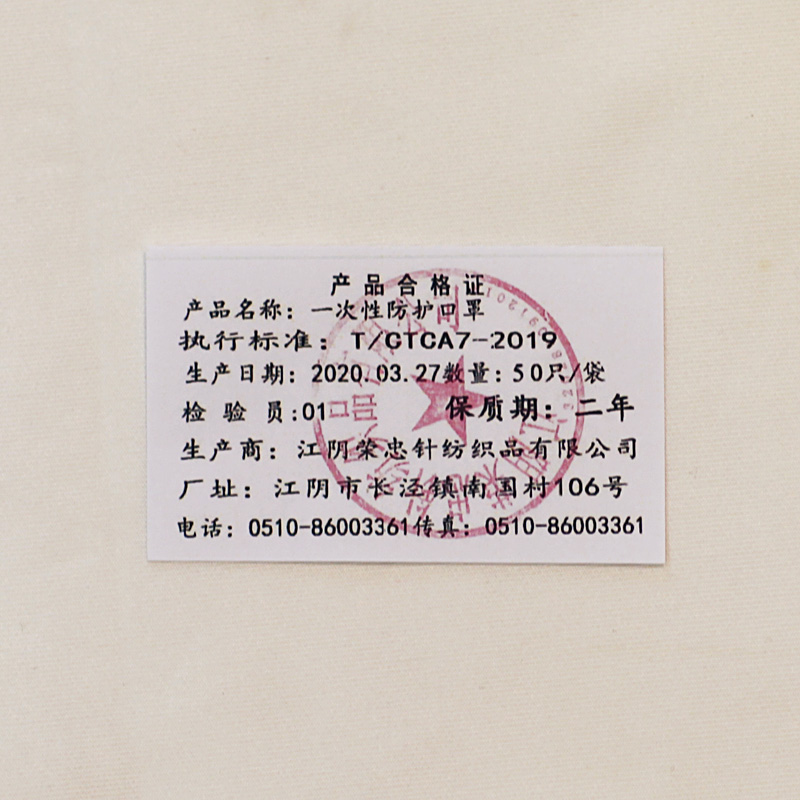 产品合格证
产品名称：一次性防护口罩
执行标准：T/CTCA7-2019
生产日期：2020.03.27数量：50只/袋
检 验 员:01 保质期：二年
生产商：江阴荣忠针纺织品有限公司
厂址：江阴市长泾镇南国村106号
电话：0510-86003361传真：0510-86003361